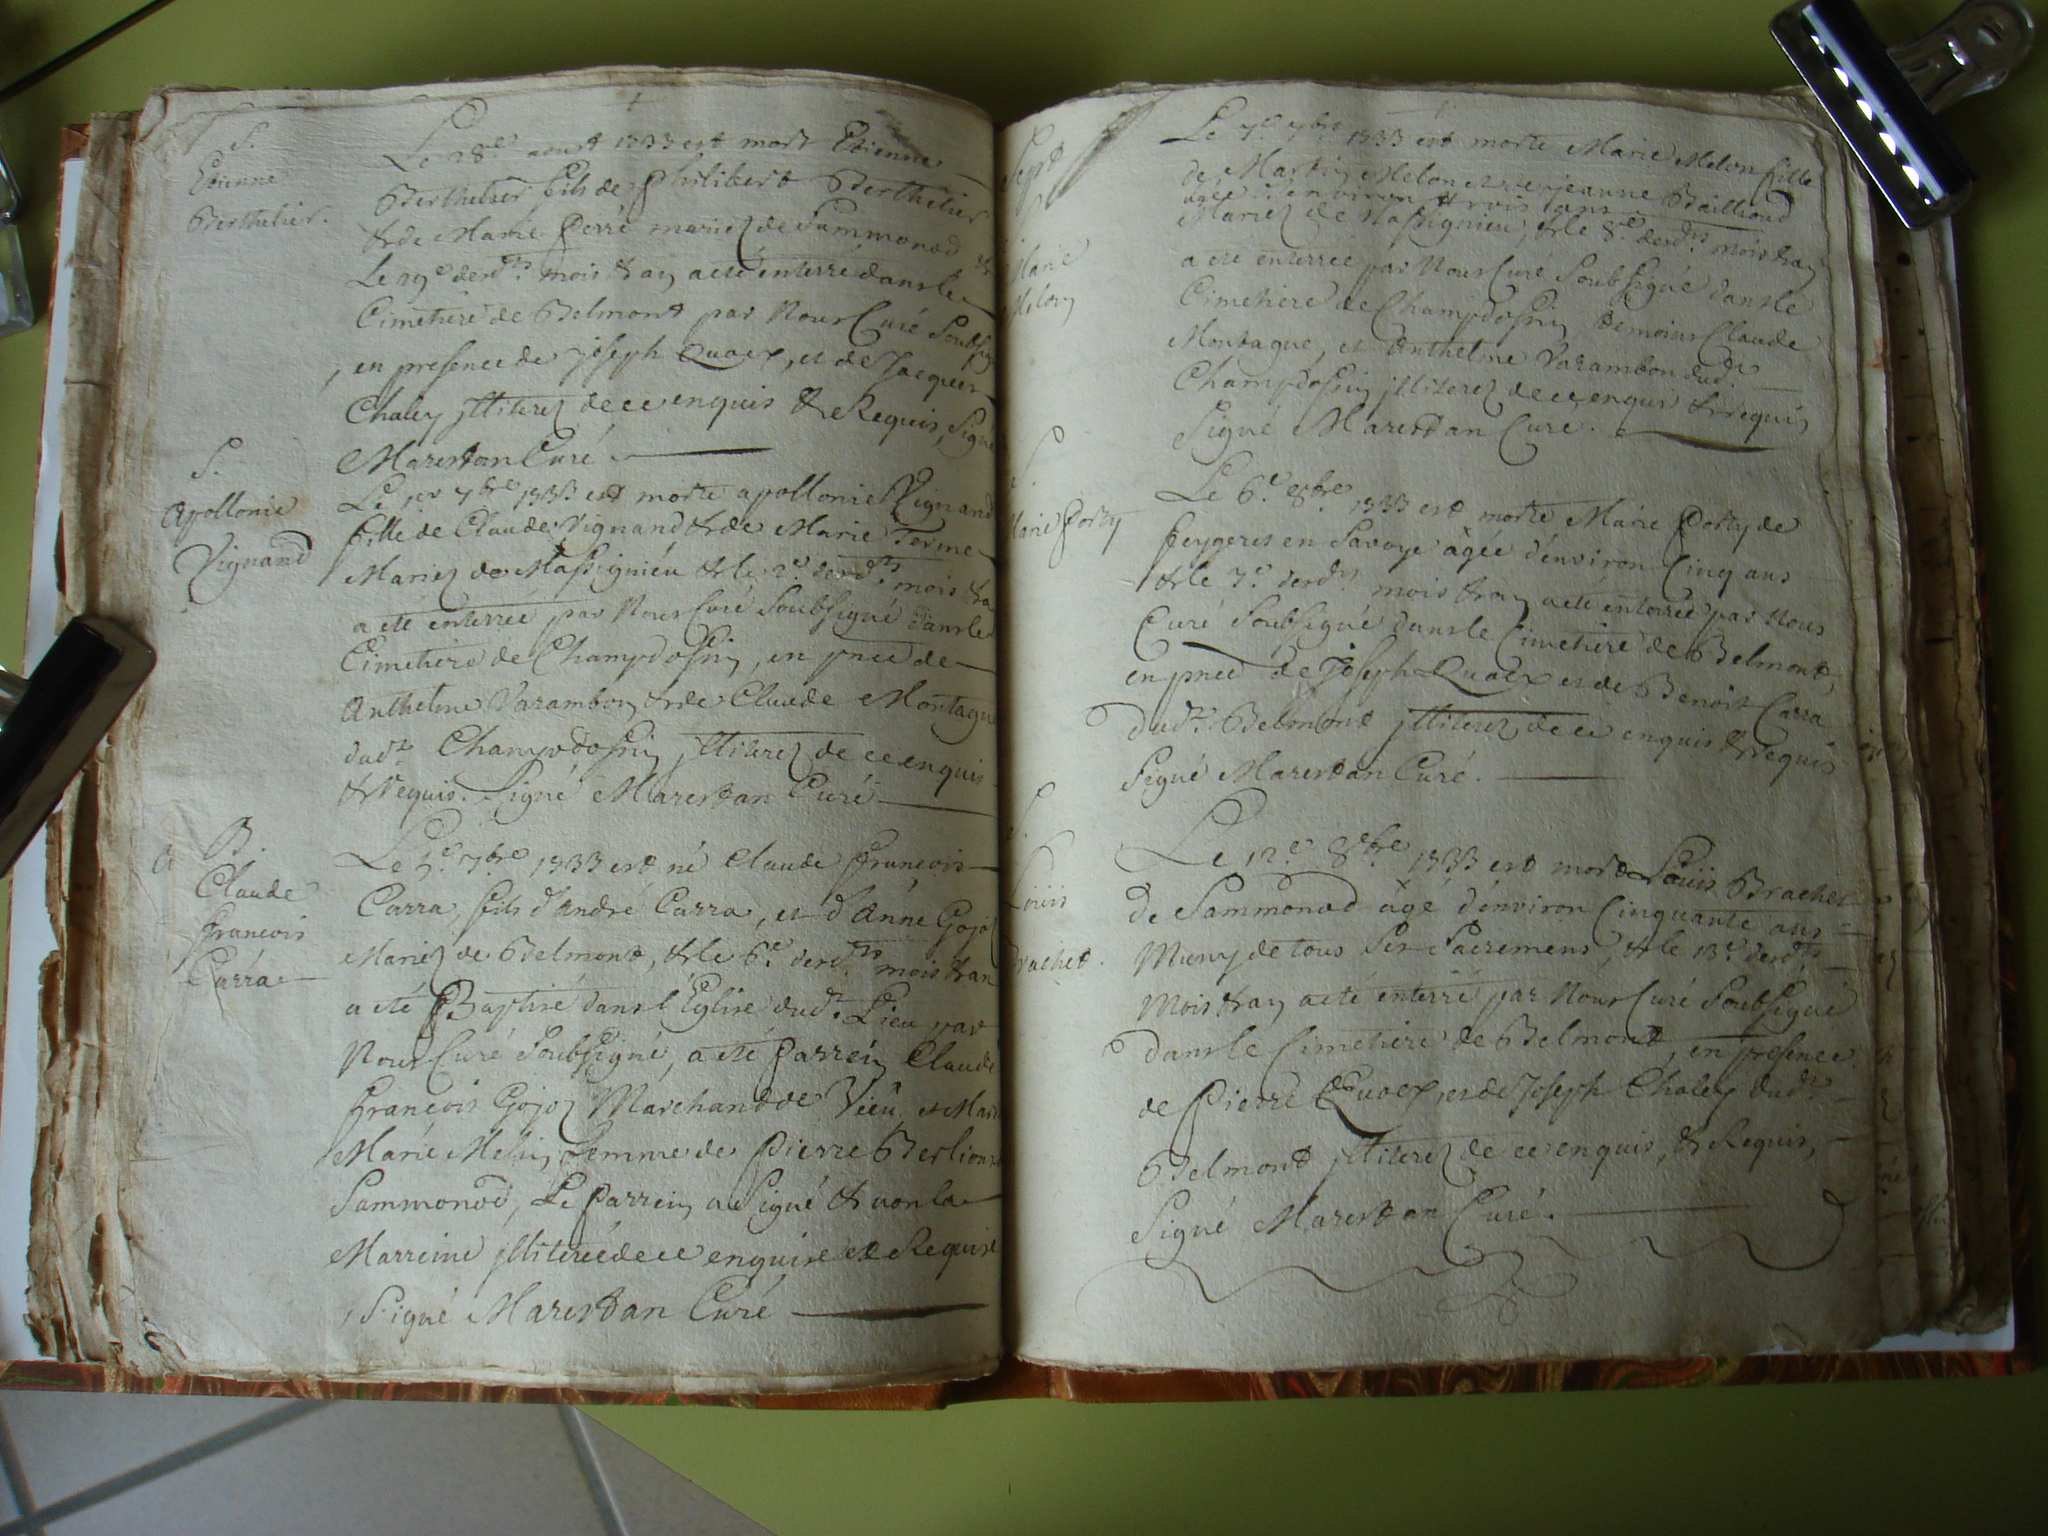 S.
Etienne
Berthelier.
Le 28.e aoust 1733 est mort Etienne
Berthelier fils de Philibert Berthelier
& de Marie Perré mariez de Sammonod &
Le 29.e desd.ts mois & an a eté énterré dans le
Cimetiere de Belmont par Nous Curé Soubsig
, en presence de joseph Quaex, et de Jacques
Chaley jlliterez de ce enquis & Requis, Signé
Marestan Curé.
S.
Apollonie
Vignand
Le 1.er 7.bre 1733 est morte apollonie Vignand
fille de Claude Vignand & de Marie Terme
Mariez de Massignieu & le 2.e desd.ts mois & a
a eté énterrée par Nous Curé Soubsigné dans le
Cimetiere de Champdossin, en pnce de
Anthelme Varambon & de Claude Montague
dud.t Champdossin jlliterez de ce enquis
& requis. Signé Marestan Curé
B.
Claude
françois
Carra
Le 5.e 7.bre 1733 est né Claude françois
Carra, fils d'André Carra, et d'Anne Gojoz
Mariez de Belmont, & le 6.e desd.ts mois & an
a eté Baptisé dans l'Eglise dud.t Lieu par
Nous Curé Soubsigné, a eté Parrein Claude
françois Gojoz Marchand de Vieu, et Mar
Marie Melin femme de Pierre Berlion
Sammonod, Le Parrein a Signé & non la
Marreine jlliterée de ce enquise et Requise
, Signé Marestan Curé
Sept
Marie
Melon
Le 7.e 7.bre 1733 est morte Marie Melon fille
de Martin Melon et de jeanne Bailliond
agée d'énviron trois ans
Mariez de Massignieu, & le 8.e desd.ts mois & an
a eté énterrée par Nous Curé Soubsigné dans le
Cimetiere de Champdossin temoins Claude
Montague, et Anthelme Varambon dud.t
Champdossin jlliterez de ce enquis & requis
Signé Marestan Curé.
S.
Marie Porty
Le 6.e 8.bre 1733 est morte Marie Porty de
feygeres en Savoye âgée d'énviron Cinq ans
& le 7.e desd.ts mois & an a eté énterrée par Nous
Curé Soubsigné dans le Cimetiere de Belmont,
en pnce de Joseph Quaex et de Benoit Carra
dud.t Belmont jlliterez de ce enquis & requis
Signé Marestan Curé.
S.
Louis
Brachet.
Le 12.e 8.bre 1733 est mort Louis Brachet
de Sammonod âgé d'énviron Cinquante ans
Muny de tous Ses Sacremens, & le 13.e desd.ts
Mois & an a eté énterré par Nous Curé Soubsigné
dans le Cimetiere de Belmont, en presence
de Pierre Quaex, et de Joseph Chaley dud.t
Belmont jlliterez de ce enquis, & Requis,
Signé Marestan Curé.